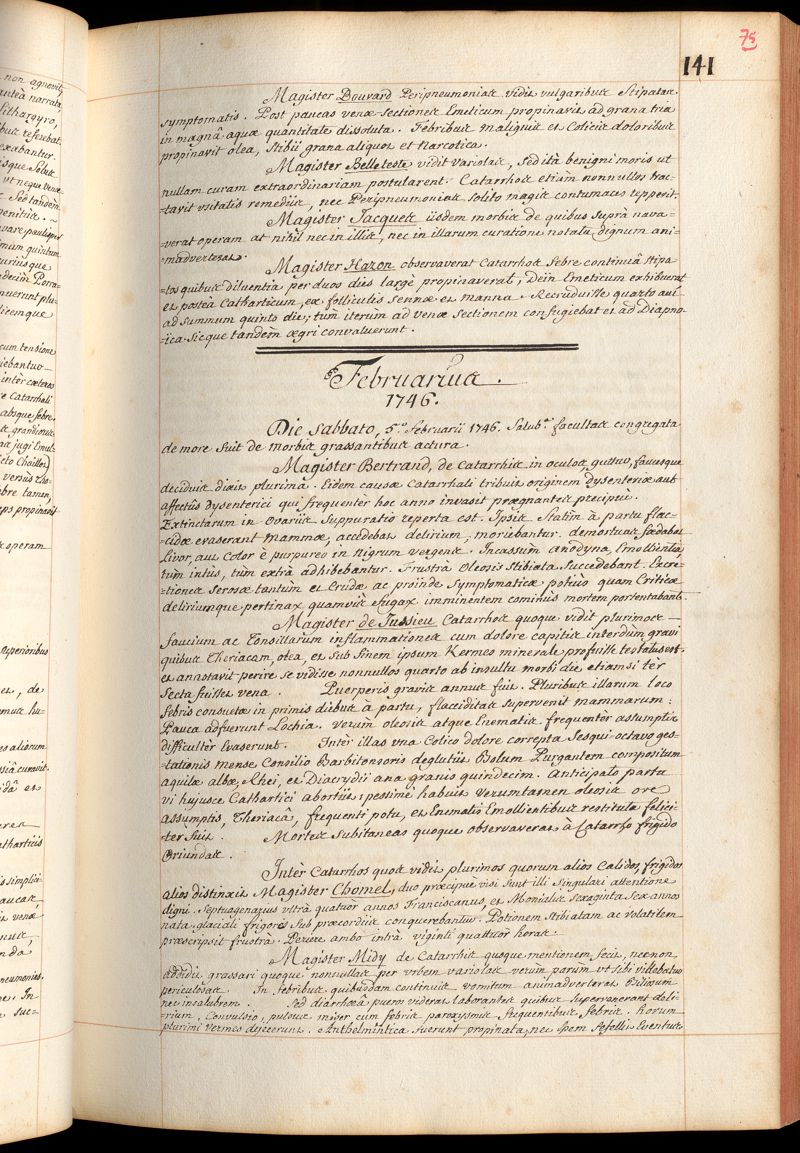 non agnovit,
antèa narrata,
Lithargyro,
exabantur.
Sed tandem
mum quintum
operam
asperionibus
75
141
Magister Bouvard Peripneumonias vidit vulgaribus Stipatas
symptomatis. Post paucas venæ sectiones Emeticum propinavit ad grana tria
in magnâ aquæ quantitate dissoluta. Febribus malignis et Colicis doloribus
propinavit olea, Stibii grana aliquot et narcotica.
Magister Belleteste vidit variolas, sed ità benigni moris ut
nullam curam extraordinariam postularent. Catarrhos etiam nonnullos trac-
-tavit usitatis remediis, nec Peripneumonias solito magis contumaces repperit.
Magister Jacques iisdem morbis de quibus suprà nava-
-verat operam at nihil nec in illis, nec in illarum curatione notatu dignum ani-
-madverterat.
Magister Hazon observaverat Catarrhos febre continuâ Stipa-
-tos quibus diluentia per duos dies largè propinaverat, Deïn Emeticum exhibuerat
et posteà Catharticum, ex folliculis Sennæ et manna. Recruduisse quarto aut
ad summum quinto die; tùm iterum ad venæ Sectionem confugiebat et ad Diapno-
-ica sicque tandem ægri convaluerunt.
Februarius.
1746.
Die Sabbato, 5.ª februarii 1746. Salub.ª facultas congregata
de more fuit de morbis grassantibus actura.
Magister Bertrand, de Catarrhis in oculos, guttur, faucesque
deciduis dixit plurima. Eidem causæ Catarrhali tribuit originem dysenteriæ aut
affectûs dysenterici qui frequentèr hoc anno invasit prægnantes precipuè.
Extinctarum in Ovariis Suppuratio reperta est. Ipsis Statìm à partu flac-
-cidæ evaserant mammæ, accedebat delirium, moriebantur. demortuas fædabat
Livor, aut Color è purpureo in nigrum vergens. Incassum anodyna, Emollientia
tùm intùs, tùm extrà adhibebantur. Frustrà Oleosis Stibiata Succedebant. Excre-
-tiones Serosæ tantum et Crudæ ac proinde Symptomaticæ potiùs quam Criticæ
deliriumque pertinax quamvis fugax imminentem cominus mortem portentabant.
Magister de Jussieu Catarrhos quoque vidit plurimos
faucium ac Tonsillarum inflammationes cum dolore capitis interdùm gravi
quibus Theriacam, olea, et sub finem ipsum Kermes minerale profuisse testatus est.
et annotavit perire se vidisse nonnullos quarto ab insultu morbi die etiamsi tèr
Secta fuisset vena. Puerperis gravis annus fuit. Pluribus illarum loco
febris consuetæ in primis diebus à partu, flacciditas supervenit mammarum.
Pauca adfuerunt Lochia. Verum oleosis atque Enematis frequentèr assumptis
difficultèr Evaserunt. Intèr illas una Colico dolore correpta Sesqui-octavo ges-
-tationis mense Consilio Barbitonsoris deglutiit Bolum Purgantem compositum
aquilæ albæ, Rhei, et Diacrydii ana granis quindecim. Anticipato partu
vi hujusce Cathartici abortiit, pessimè habuit verumtamen oleosis ore
assumptis, Theriacâ, frequenti potu, et Enematis Emollientibus restituta felici-
-ter fuit. Mortes subitaneas quoque observaverat à Catarrho frigido
Oriundas.
Intèr Catarrhos quos vidit plurimos quorum alios Calidos, frigidos
alios distinxit Magister Chomel, duo præcipuè visi sunt illi Singulari attentione
digni. Septuagenarius ultrà quatuòr annos Franciscanus, et Monialis Sexaginta Sex annos
nata, glaciali frigore Sub præcordiis conquerebantur. Potionem Stibiatam ac volatilem
præscripsit frustra. Periere ambo intrà viginti quattuor horas.
Magister Midy de Catarrhis quoque mentionem fecit, nec non
addidit grassari quoque nonnullas per urbem variolas verùm parùm ut sibi videbatur
periculosas. In febribus quibusdam continuis vomitum animadverterat biliosum
nec insalubrem. Sed diarrhœâ pueros viderat laborantes quibus Supervenerant deli-
-rium, Convulsio, pulsus misèr cùm febris paroxysmis frequentibus febris. horum
plurimi vermes dejecerunt. Anthelmintica fuerunt propinata, nec Spem fefellit Eventus